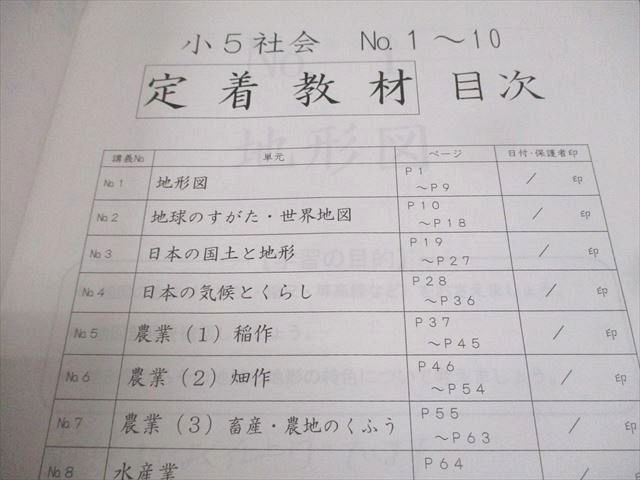 小5社会 No.1～10
定着教材 目次
講義No 単元 ページ 日付・保護者印
No.1 地形図 P1～P9 / 印
No.2 地球のすがた・世界地図 P10～P18 / 印
No.3 日本の国土と地形 P19～P27 / 印
No.4 日本の気候とくらし P28～P36 / 印
No.5 農業（1）稲作 P37～P45 / 印
No.6 農業（2）畑作 P46～P54 / 印
No.7 農業（3）畜産・農地のくふう P55～P63 / 印
No.8 水産業 P64